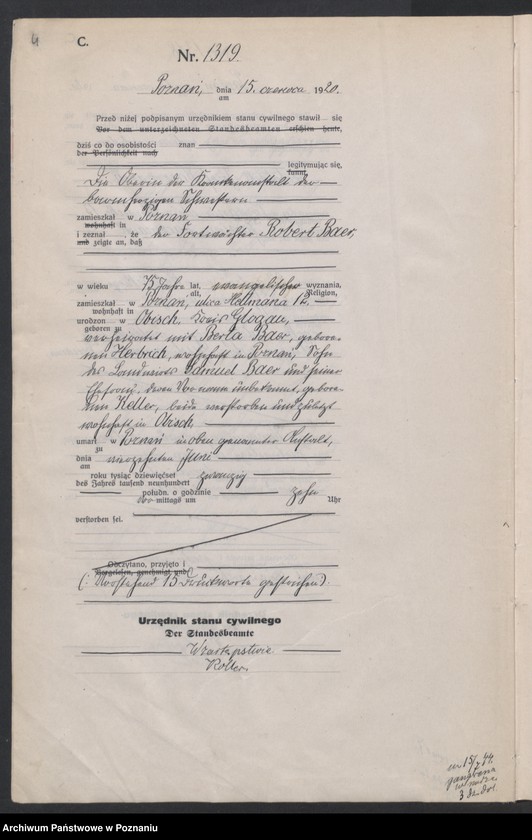 4
C.
Nr. 1319.
Poznań, dnia 15. czerwca 1920.
am
Przed niżej podpisanym urzędnikiem stanu cywilnego stawił się
Vor dem unterzeichneten Standesbeamten erschien heute,
dziś co do osobistości znan
der Persönlichkeit nach
legitymując się,
kannt,
Die Oberin der Krankenanstalt der
barmherzigen Schwestern
zamieszkał w Poznań,
wohnhaft in
i zeznał , że der Forstwächter Robert Baer,
und zeigte an, daß
w wieku 75 Jahre lat, evangelischer wyznania,
alt, Religion,
zamieszkał w Poznań, ulica Hellmana 12,
wohnhaft in
urodzon w Obisch, Kreis Glogau,
geboren zu
verheiratet mit Berta Baer, gebore-
nen Herbrich, wohnhaft in Poznań, Sohn
des Landwirts Samuel Baer und seiner
Ehefrau, deren Vorname unbekannt, gebore-
nen Keller, beide verstorben und zuletzt
wohnhaft in Obisch
umarł w Poznań in oben genannter Anstalt,
zu
dnia vierzehnten Juni
am
roku tysiąc dziewięćset zwanzig
des Jahres tausend neunhundert
połudn. o godzinie zehn
vor mittags um Uhr
verstorben sei.
Odczytano, przyjęto i
Vorgelesen, genehmigt und
(: Vorstehend 15 Druckworte gestrichen).
Urzędnik stanu cywilnego
Der Standesbeamte
W zastępstwie
Roller.
3
Archiwum Państwowe w Poznaniu